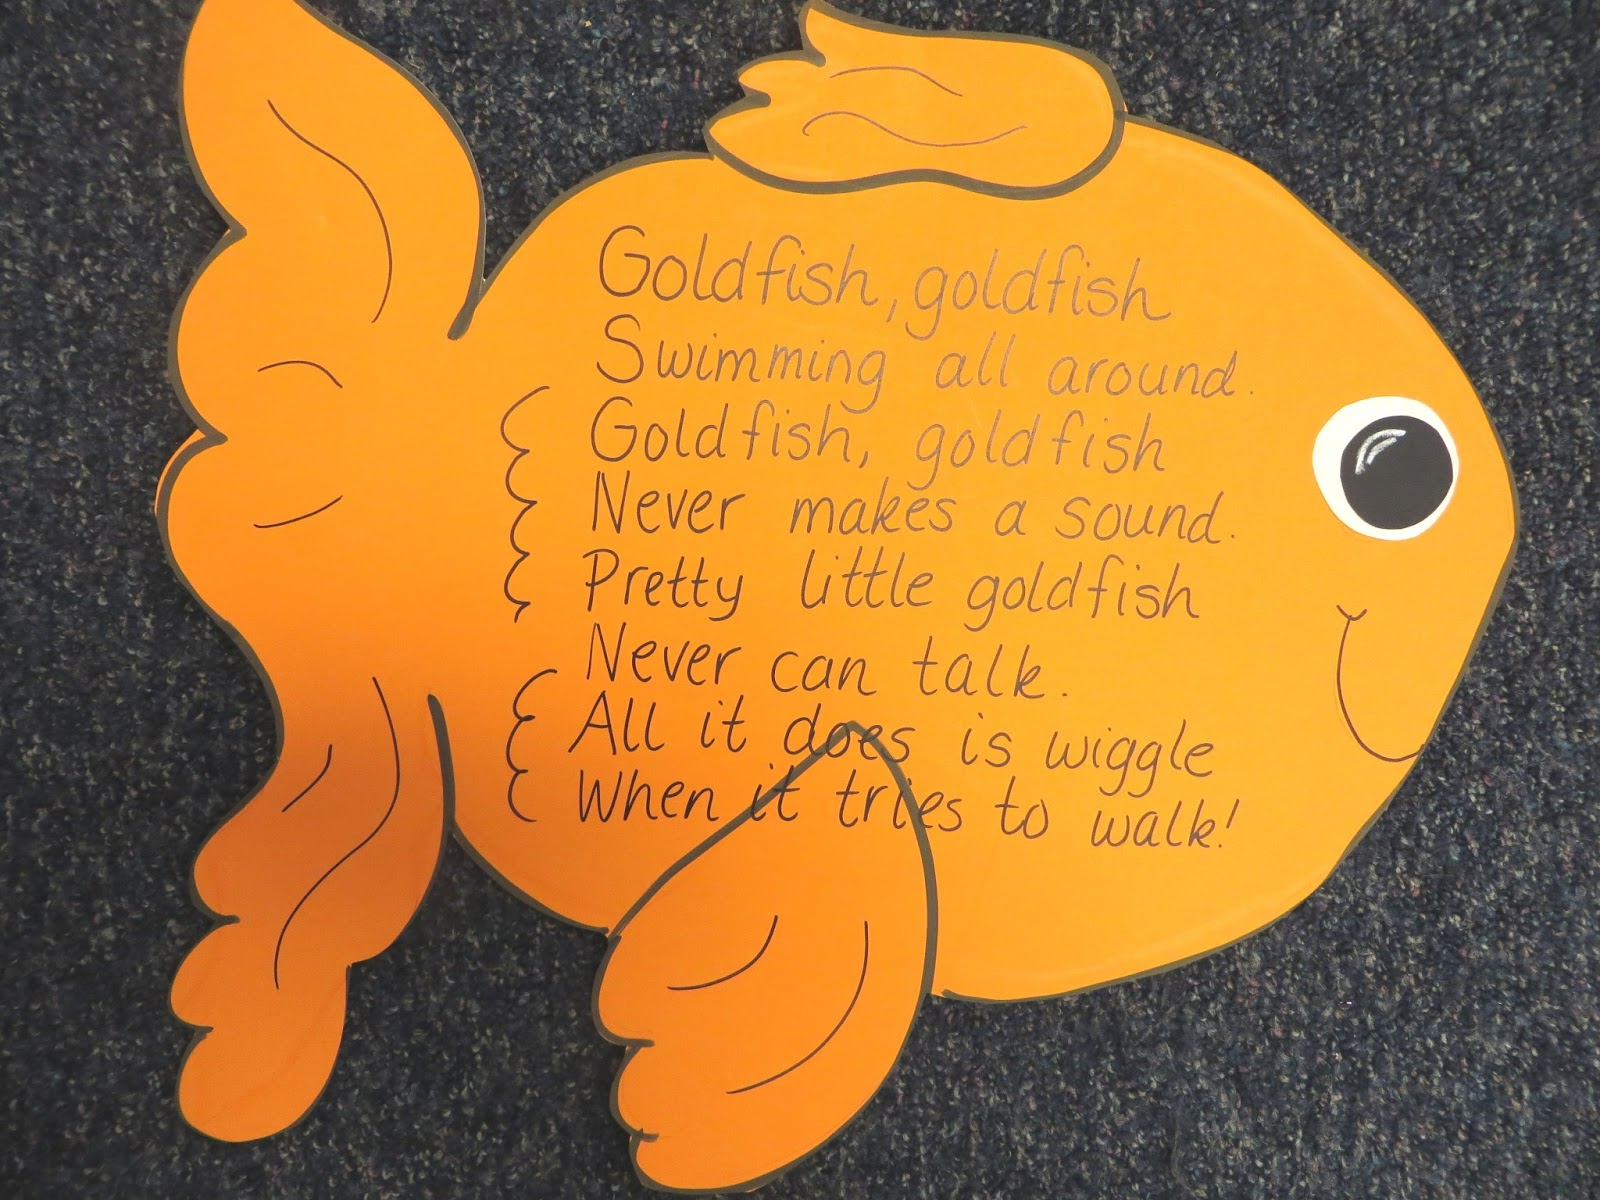 Goldfish, goldfish
Swimming all around.
Goldfish, goldfish
Never makes a sound.
Pretty little goldfish
Never can talk.
All it does is wiggle
When it tries to walk!